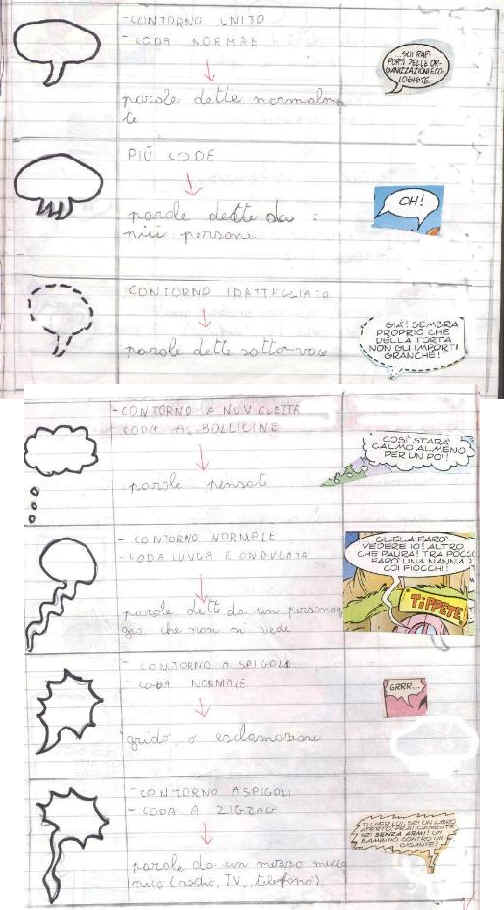 - CONTORNO UNITO
- CODA NORMALE
parole dette normalmen
te
SUI RAP-
PORTI DELLE OR-
GANIZZAZIONI ECO-
LOGISTE
PIÙ CODE
parole dette da
più persone
OH!
CONTORNO TRATTEGGIATO
parole dette sotto voce
GIÀ! SEMBRA
PROPRIO CHE
DELLA TORTA
NON GLI IMPORTI
GRANCHÉ!
- CONTORNO A NUVOLETTA
CODA A BOLLICINE
parole pensate
COSÌ STARÀ
CALMO ALMENO
PER UN PO'!
- CONTORNO NORMALE
- CODA LUNGA E ONDULATA
parole dette da un personag
gio che non si vede
QUELLA FARÒ
VEDERE IO! ALTRO
CHE PAURA! TRA POCO
FARÒ UNA NANNA
COI FIOCCHI!
TIPPETE
- CONTORNO A SPIGOLI
CODA NORMALE
grido o esclamazione
GRRR...
- CONTORNO A SPIGOLI
- CODA A ZIGZAG
parole da un mezzo mecca
nico (radio, TV, telefono)
SEI UN LIBRO
SEI SENZA ARMI! UN
BAMBINO CONTRO UN
GIGANTE!